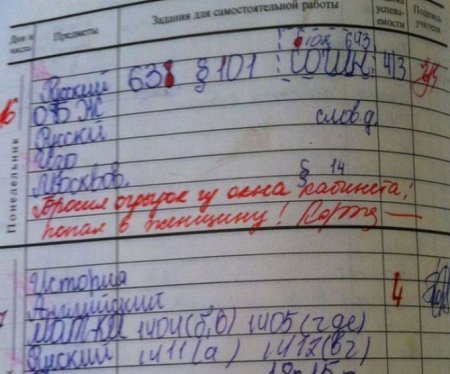 Дни и числа Предметы Задания для самостоятельной работы успева-емости Подпись учителя
102 643
Русский 638 § 101 4/3
ОБЖ
Русски слов.д.
Изо
Москвов. § 14
Бросил огрызок из окна кабинета,
попал в женщину!
Понедельник
История
Английский 4
МАТ-КА 1404(б,в) 1405(где)
Руский 1411(а) 1412(вг)